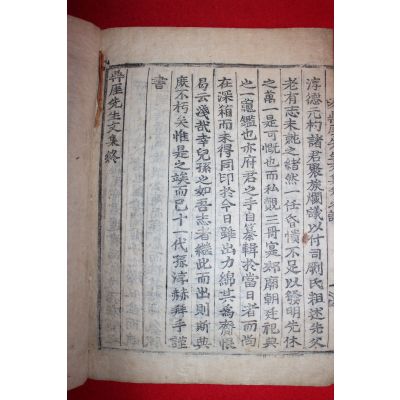 淳德元杓諸君聚族爛議以付司劂氏相述先父
老有志未就之緒然一任昏憒不足以發明先休
之萬一是可慨也而私觀三哥寔鄕廟朝廷祀典
之一龜鑑也亦府君之手自纂輯於當日者而尚
在深箱而未得同印於今日雖出力綿其爲齎恨
曷云淺哉幸兒孫之如吾志者繼此而出則斯典
庶不朽矣惟是之竢而已十一代孫淳赫拜手謹
書
先生文集終